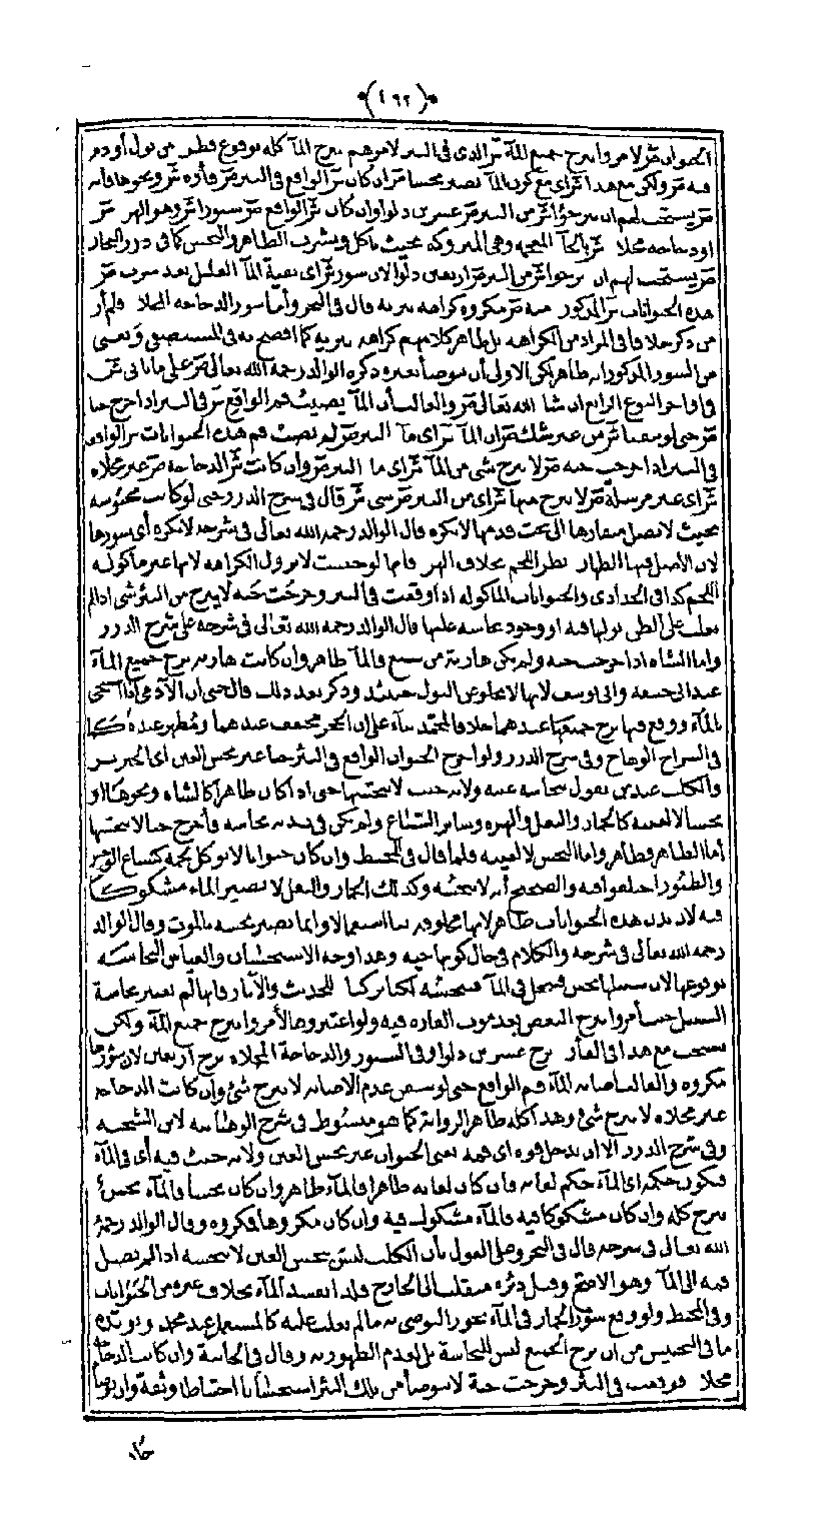 (٤٩٢)
الحيوان ص لا مر وا بنزح جميع الماء ش الذي في البئر لامرهم بنزح الماء كله بوقوع قطر من بول أو دم
فيه ص ولكن مع هذا ش أي مع كون الماء نجسا ص ان كان ش الواقع في البئر ص فأرة ش ونحوها فانه
ص يستحب لهم ان ينزحوا ش من البئر ص عشرين دلوا وان كان ش الواقع ص سنورا ش وهو الهر ص
او دجاجة مخلاة ش بالخاء المعجمة وهي المتروكة بحيث تأكل وتشرب الطاهر والنجس كما في درر البحار
ص يستحب لهم ان ينزحوا ش من البئر ص اربعين دلوا لان سور ش أي بقية الماء القليل بعد شرب ص
هذه الحيوانات ش المذكور منه ص مكروه كراهة تنزيه قال في البحر وأما سور الدجاجة المخلاة فلم أر
من ذكر خلافا في المراد من الكراهة بل ظاهر كلامهم كراهة تنزيه كما افصح به في المستصفى ويعني
من السور المذكور انه طاهر لكن الاولى أن يتوضأ بغيره ذكره الوالد رحمه الله تعالى ص على ما يأتي ش
في اواخر النوع الرابع ان شا الله تعالى ص والغالب أن الماء يصيب فم الواقع ش في البئر اذا خرج حيا
ص حتى لو تيقنا ش من غير شك ص ان الماء ش أي ما البئر ص لم يصب فم هذه الحيوانات ش الواقعة
في البئر اذا خرجت حية ص لا ينزح شي من الماء ش أي ما البئر ص وان كانت ش الدجاجة ص غير مخلاة
ش أي غير مرسلة ص لا ينزح منها ش أي من البئر ص شي ش قال في شرح الدرر حتى لو كانت محبوسة
بحيث لا يصل منقارها الى تحت قدمها لا يكره قال الوالد رحمه الله تعالى في شرحه لا يكره أي سورها
لان الأصل فيها الطهارة نظرا للحم بخلاف الهر فانها لو حبست لا تزول الكراهة لانها غير مأكولة
اللحم كذا في الحدادي والحيوانات المأكولة اذا وقعت في البئر وخرجت حية لا ينزح من البئر شي اذا لم
يغلب على الظن بولها فيه او وجود نجاسة عليها قال الوالد رحمه الله تعالى في شرحه على شرح الدرر
واما الشاة اذا خرجت حية ولم تكن هاربة من سبع فالماء طاهر وان كانت هاربة نزح جميع الماء
عند ابي حنيفة وابي يوسف لانها لا تخلو عن البول حينئذ وذكر بعد ذلك قالحتى ان الآدمي اذا استنجى
بالماء ووقع فيها نزح جميعها عندهما خلافا لمحمد بناء على ان الحجر مخفف عندهما ومطهر عنده كما
في السراج الوهاج وفي شرح الدرر ولو اخرج الحيوان الواقع في البئر حيا غير نجس العين أي الخنزير
والكلب عند من يقول بنجاسة عينه ولا به خبث لا ينجسها حتى اذا كان طاهرا كالشاة ونحوها او
نجسا لا لعينه كالحمار والبغل والهرة وسائر السباع ولم يكن في بدنه نجاسة فأخرج حيا لا ينجسها
أما الطاهر فظاهر واما النجس لا لعينه فلما قال في المحيط وان كان حيوانا لا يؤكل لحمه كسباع الوحش
والطيور اختلفوا فيه والصحيح أنه لا ينجسه وكذلك الحمار والبغل لا يصير الماء مشكوكا
فيه لان بدن هذه الحيوانات طاهر لانها مخلوقة لنا استعمالا وانما تصير نجسة بالموت وقال الوالد
رحمه الله تعالى في شرحه والكلام في حال كونها حية وهذا وجه الاستحسان والقياس النجاسة
بوقوعها لان سبيلها نجس فيحل في الماء فينجسه لكنا تركنا للحديث والآثار فانها لم تعتبر نجاسة
السبيل حيث أمروا بنزح البعض بعد موت الفأرة فيه ولو اعتبروها لأمروا بنزح جميع الماء ولكن
يستحب مع هذا في الفأر نزح عشرين دلوا وفي السنور والدجاجة المخلاة نزح أربعين لان سؤرها
مكروه والغالب اصابة الماء فم الواقع حتى لو تيقن عدم الاصابة لا ينزح شئ وان كانت الدجاجة
غير مخلاة لا ينزح شئ وهذا كله ظاهر الرواية كما هو مبسوط في شرح الوهبانية لابن الشحنة
وفي شرح الدرر الا ان يدخل فوه أي فمه يعني الحيوان غير نجس العين ولا به خبث فيه أي في الماء
فيكون حكمه أي الماء حكم لعابه فان كان لعابه طاهرا فالماء طاهر وان كان نجسا فالماء نجس
ينزح كله وان كان مشكوكا فيه فالماء مشكوك فيه وان كان مكروها فمكروه وقال الوالد رحمه
الله تعالى في شرحه قال في البحر وعلى القول بأن الكلب ليس بنجس العين لا ينجسه اذا لم يصل
فمه الى الماء وهو الاصح وقيل دبره منقلب الى الخارج فلذا يفسد الماء بخلاف غيره من الحيوانات
وفي المحيط ولو وقع سؤر الحمار في الماء يجوز التوضي به ما لم يغلب عليه كالمستعمل عند محمد وذويده
ما في التجنيس من ان نزح الجميع ليس للنجاسة بل لعدم الطهورية وقال في الخانية وان كانت الدجاجة
مخلاة فوقعت في البئر وخرجت حية لا يتوضأ من تلك البئر استحسانا احتياطا وثقة وان توضأ
جاز